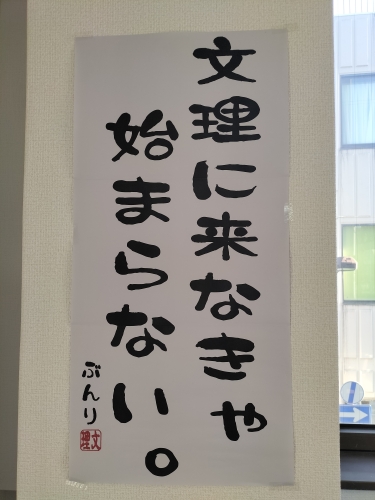 文理に来なきゃ
始まらない。
ぶんり
文理